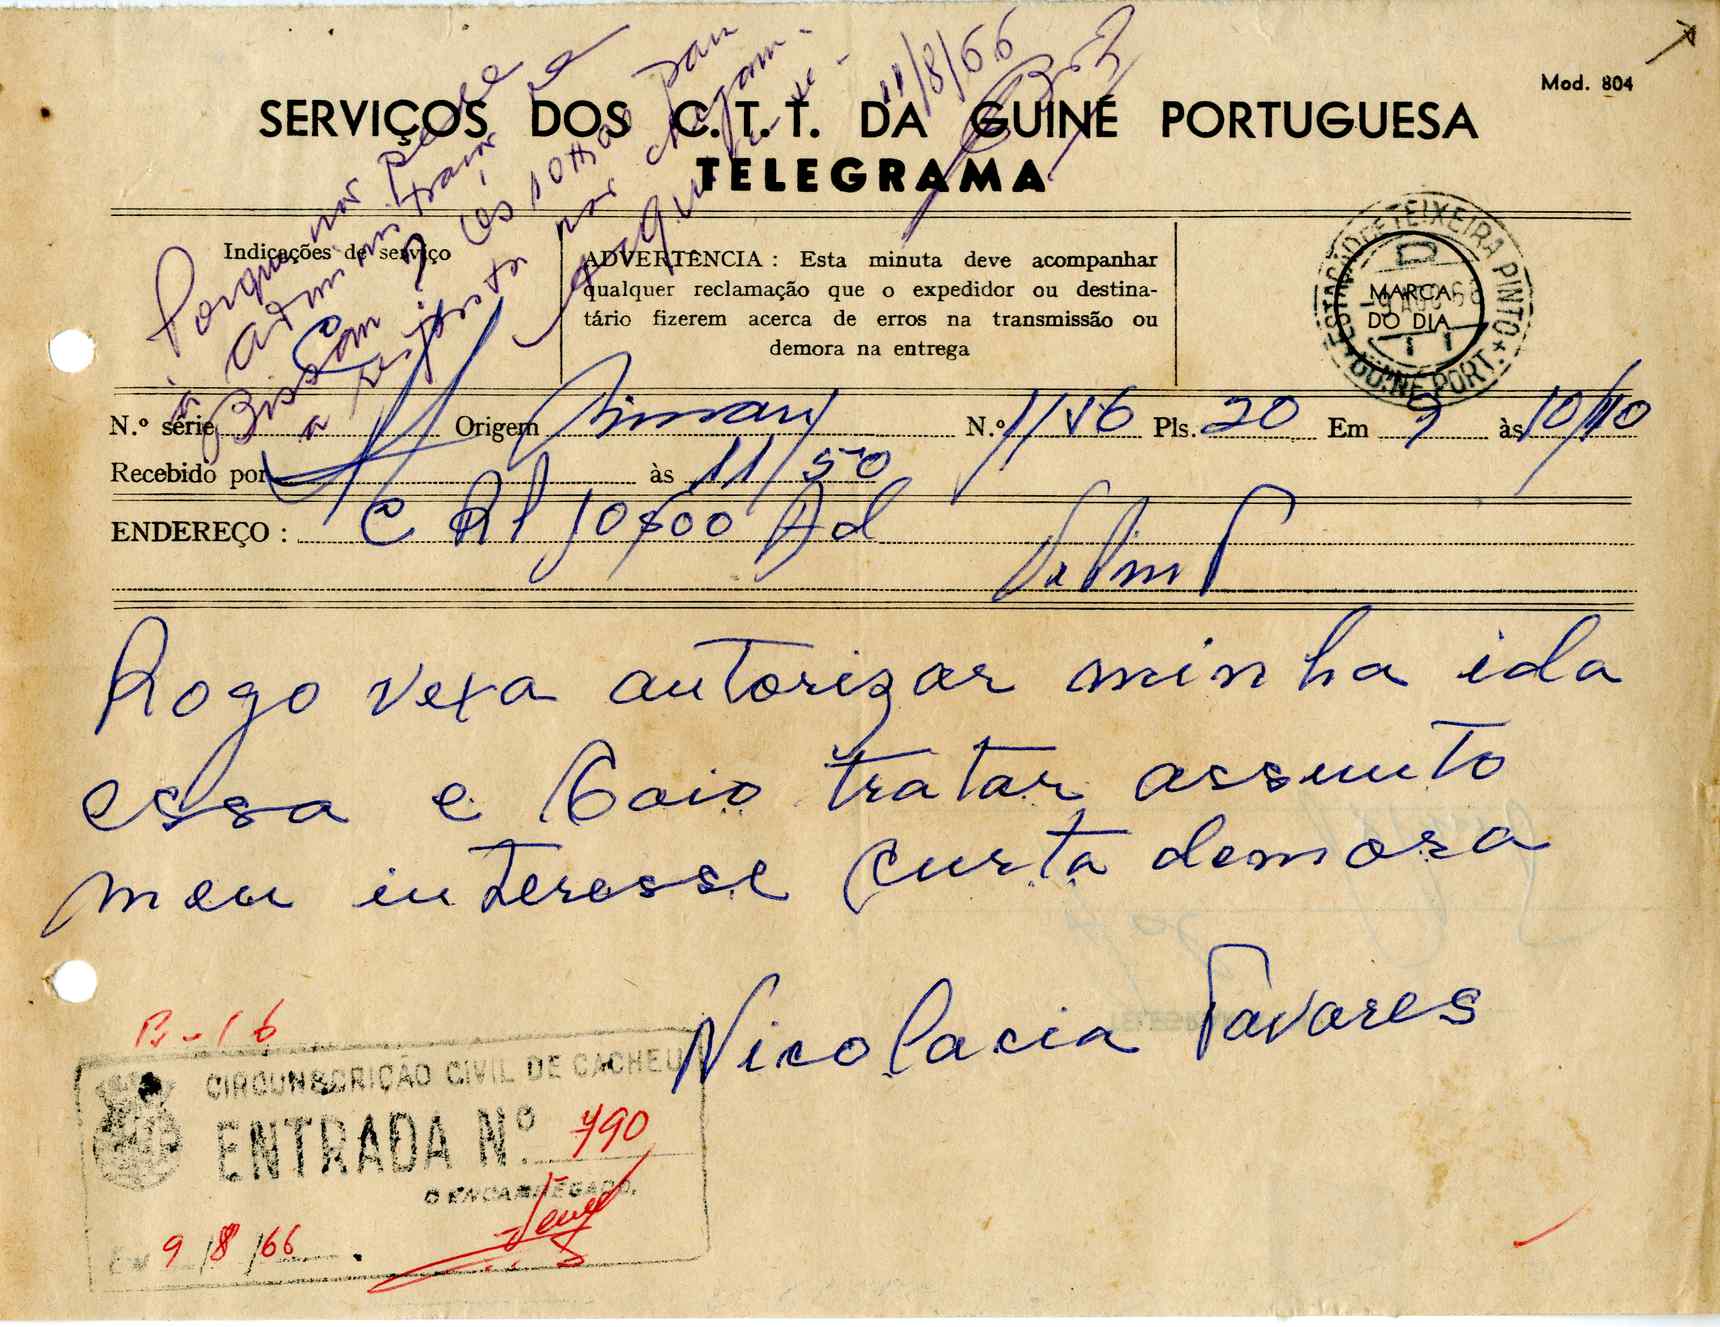 Mod. 804
SERVIÇOS DOS C.T.T. DA GUINÉ PORTUGUESA
TELEGRAMA
11/8/66
Porque não
à administração
Bissau
a resposta não
Indicações de serviço
ADVERTÊNCIA : Esta minuta deve acompanhar
qualquer reclamação que o expedidor ou destina-
tário fizerem acerca de erros na transmissão ou
demora na entrega
ESTAÇÃO DE TEIXEIRA PINTO
GUINÉ PORT.
MARCA
DO DIA
N.º série Origem N.º 1/156 Pls. 20 Em 9 às 10/10
Recebido por às 11/50
ENDEREÇO : C Rl 10$00 Ad
Rogo vexa autorizar minha ida
essa e Caio tratar assunto
meu interesse curta demora
Nicolacia Tavares
B-16
CIRCUNSCRIÇÃO CIVIL DE CACHEU
ENTRADA N.º 790
O ENCARREGADO,
Em 9/8/66